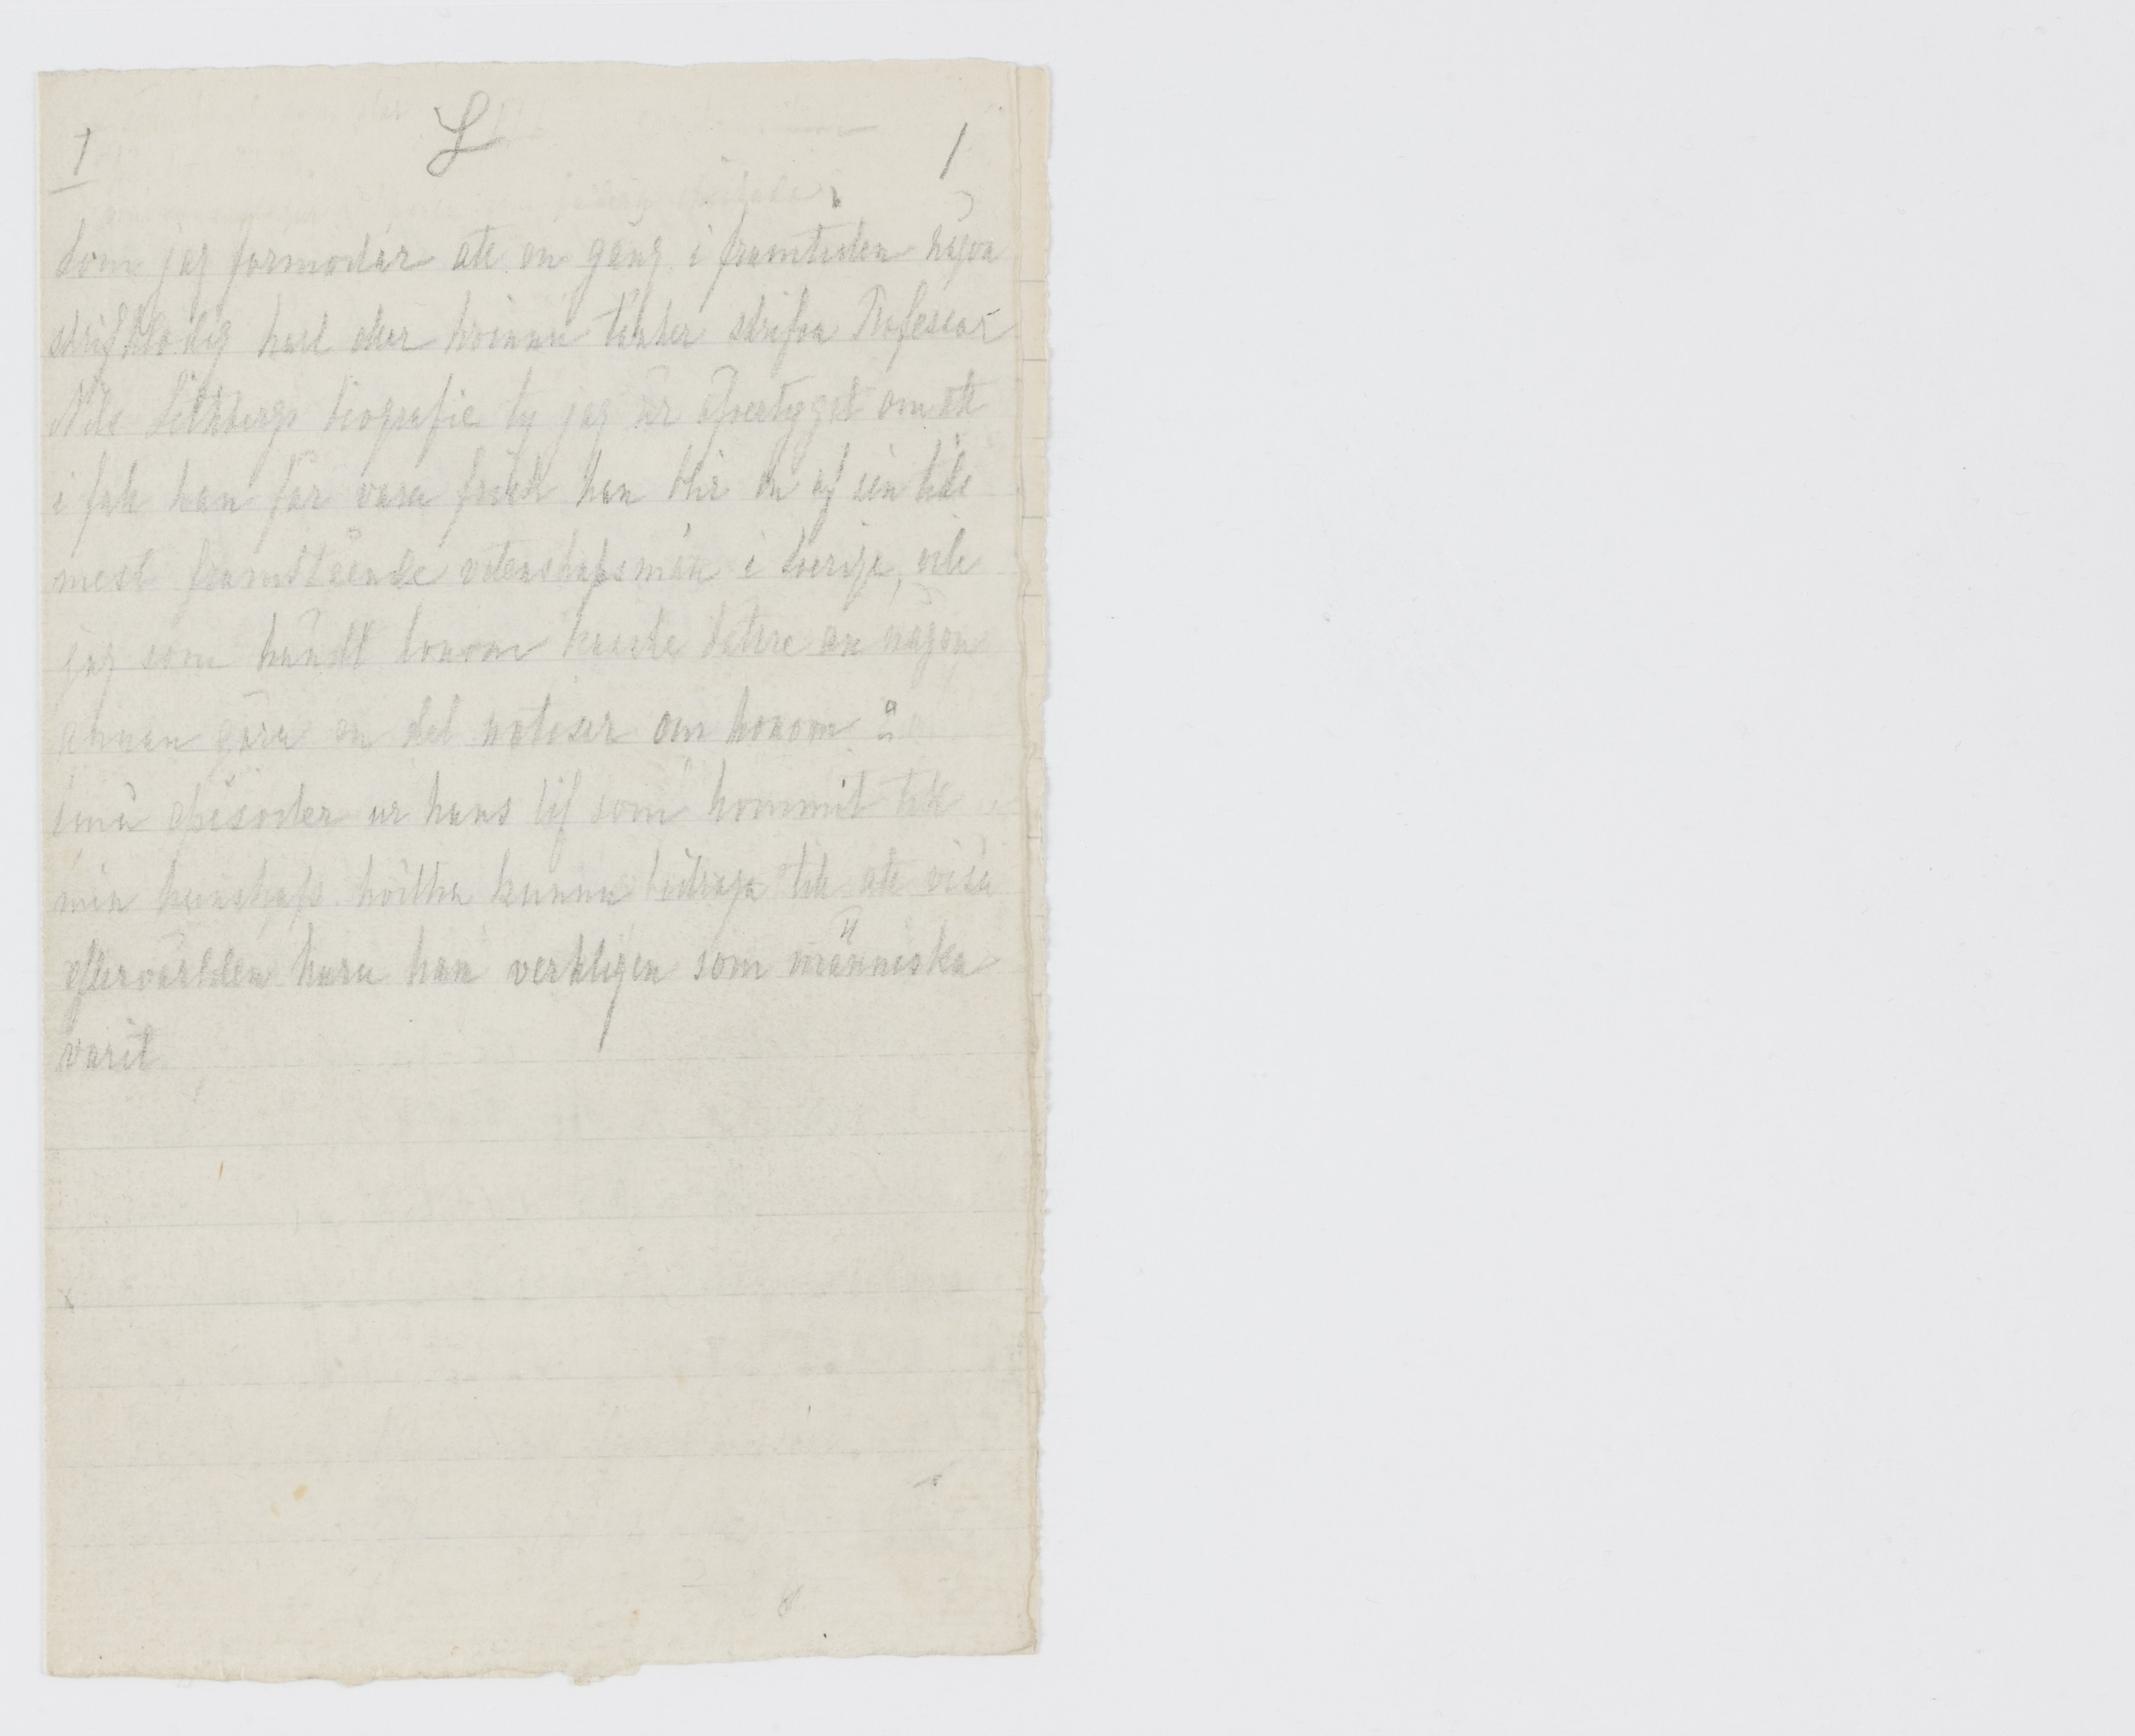 1 L 1
Som jag formodar att en gång i framtiden någon
skriftklokig karl eller kvinna tänker skrifva Professor
Nils biografie ty jag är öfvertygat om att
i fall han får vara frisk han blir en af sin tids
mest framstående vetenskapsmän i Sverije, vill
jag som kändt honom kanske bättre än någon
annan göra en del notiser om honom å
sina episoder ur hans lif som kommit till
min kunskap hvilka kunna bidraga till att visa
eftervärlden huru han verkligen som människa
varit